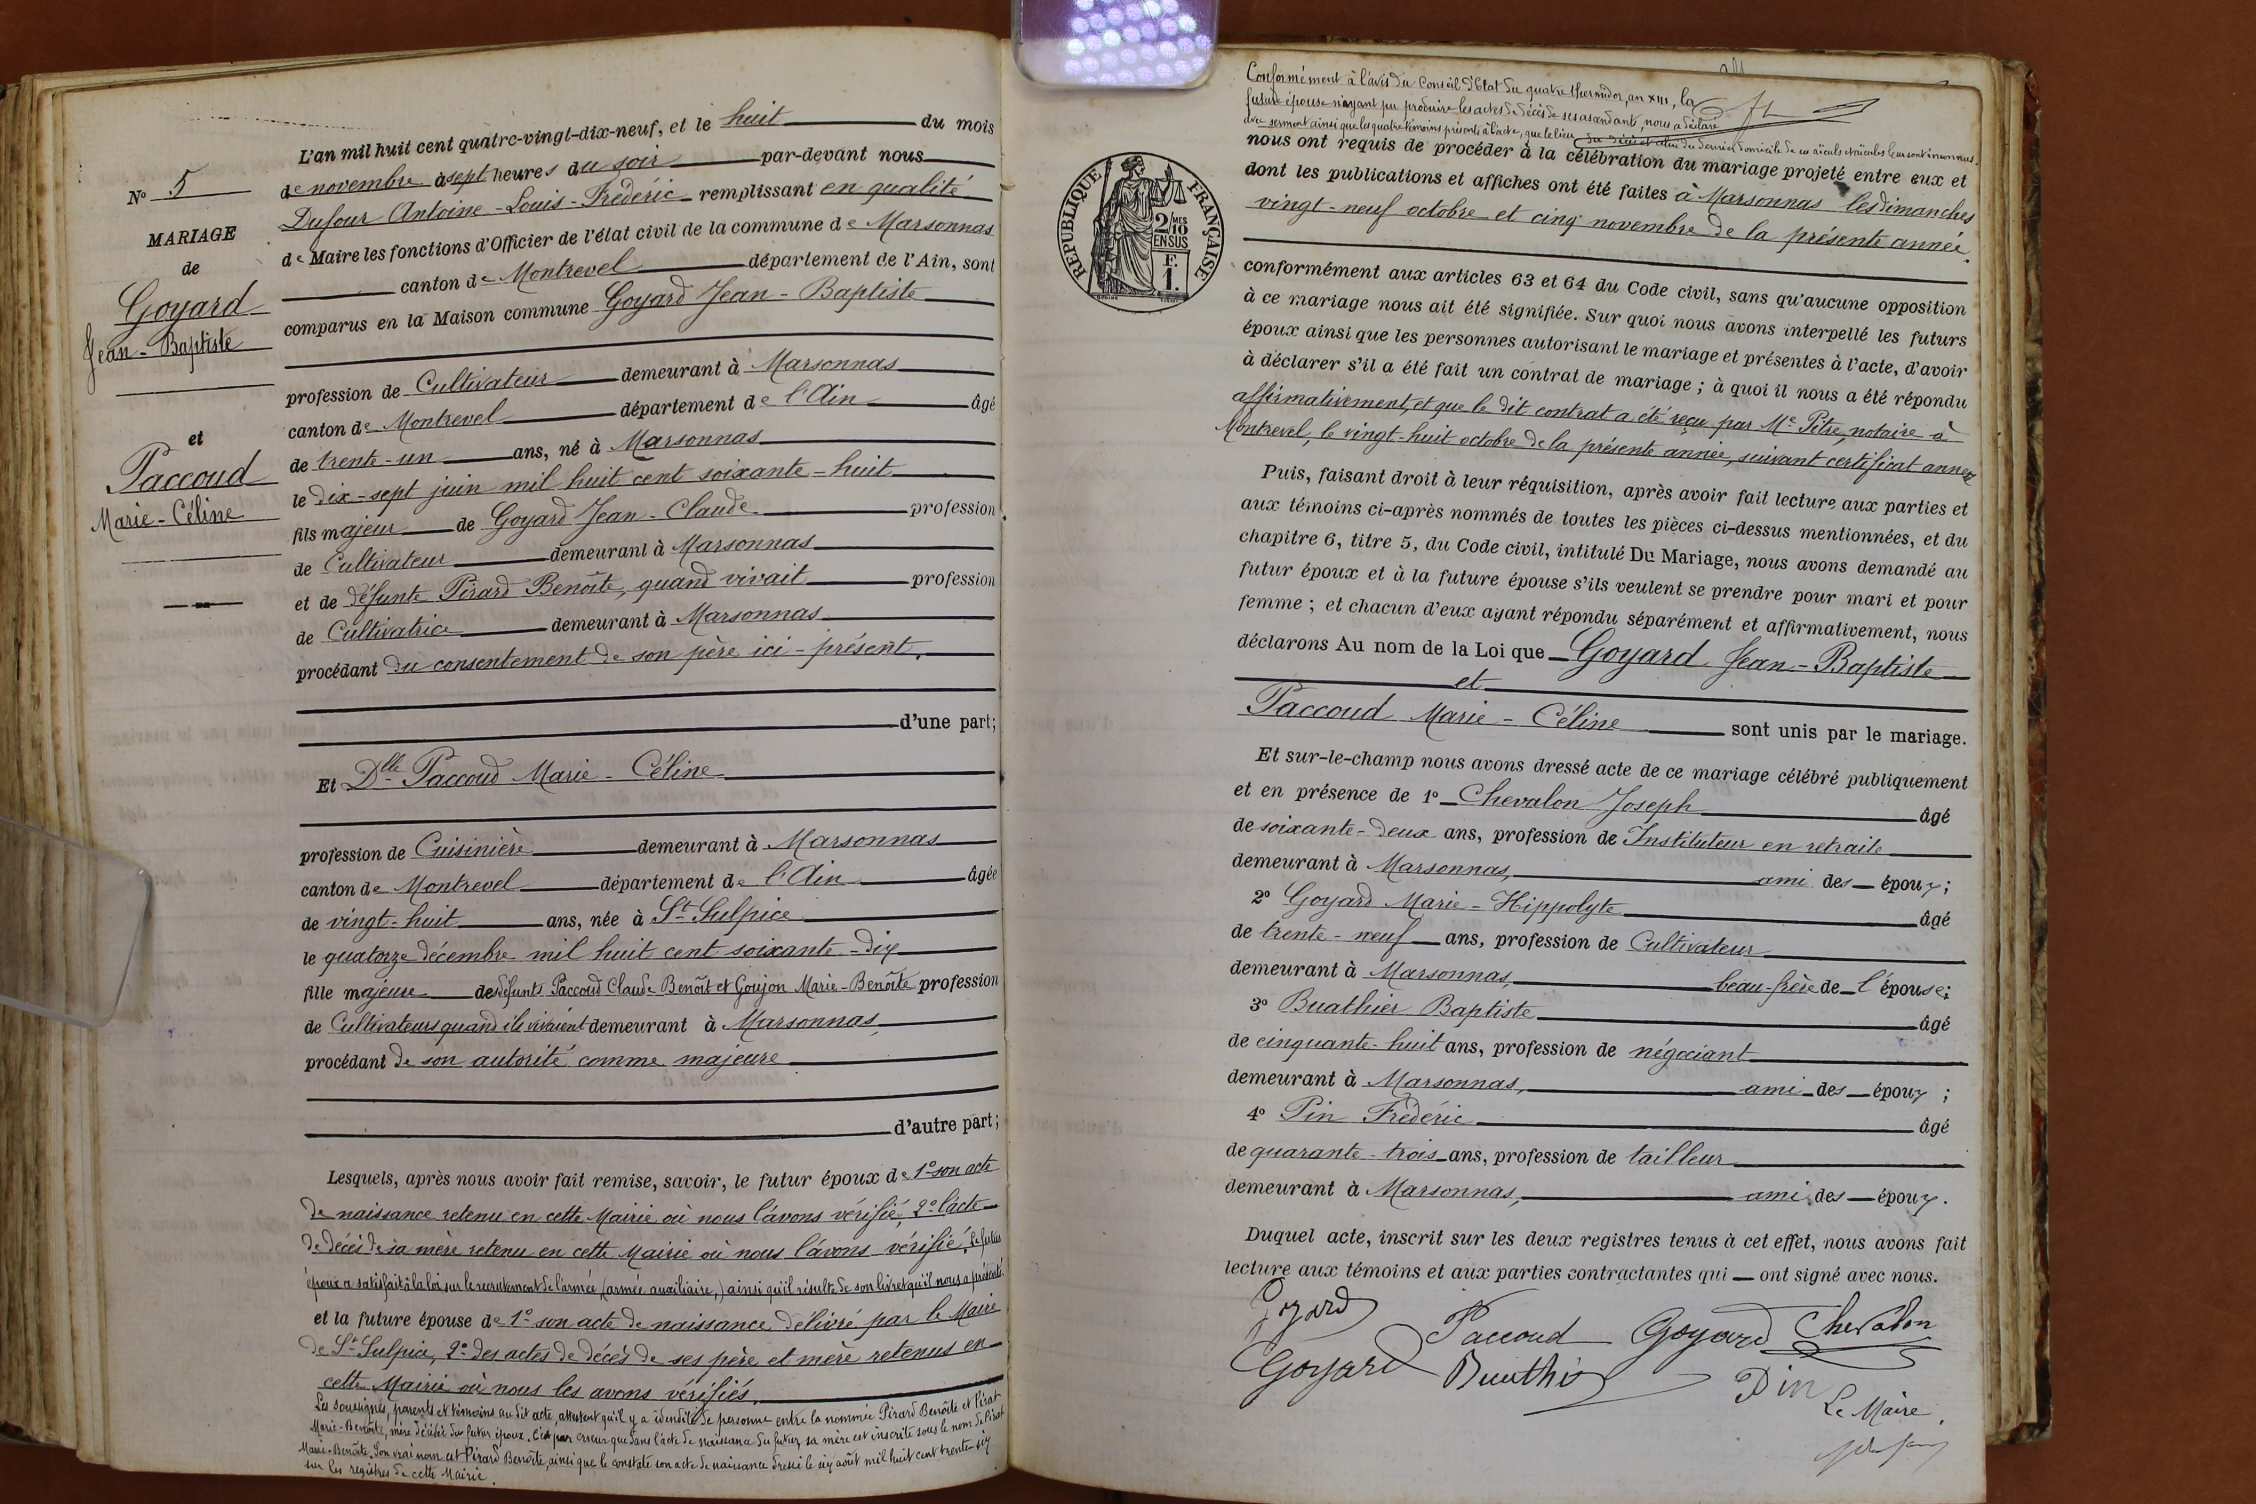 L'an mil huit cent quatre-vingt-dix-neuf, et le huit du mois
de novembre à sept heures du soir par-devant nous
Dufour Antoine-Louis-Frédéric remplissant en qualité
de Maire les fonctions d'Officier de l'état civil de la commune de Marsonnas
canton de Montrevel département de l'Ain, sont
comparus en la Maison commune Goyard Jean-Baptiste
profession de Cultivateur demeurant à Marsonnas
canton de Montrevel département de l'Ain âgé
de trente-un ans, né à Marsonnas
le dix-sept juin mil huit cent soixante-huit
fils majeur de Goyard Jean-Claude profession
de Cultivateur demeurant à Marsonnas
et de défunte Pirard Benoîte, quand vivait profession
de Cultivatrice demeurant à Marsonnas
procédant du consentement de son père ici-présent.
d'une part;
Et Dlle Paccoud Marie-Céline
profession de Cuisinière demeurant à Marsonnas
canton de Montrevel département de l'Ain âgée
de vingt-huit ans, née à St Sulpice
le quatorze décembre mil huit cent soixante-dix
fille majeure de défunts Paccoud Claude Benoît et Goujon Marie-Benoîte profession
de Cultivateurs quand ils vivaient demeurant à Marsonnas
procédant de son autorité comme majeure
d'autre part;
Lesquels, après nous avoir fait remise, savoir, le futur époux de 1° son acte
de naissance retenu en cette Mairie où nous l'avons vérifié, 2° l'acte
de décès de sa mère retenu en cette Mairie où nous l'avons vérifié, Le futur
époux a satisfait à la loi sur le recrutement de l'armée, (armée auxiliaire,) ainsi qu'il résulte de son livret qu'il nous a présenté.
et la future épouse de 1° son acte de naissance délivré par le Maire
de St Sulpice, 2° des actes de décès de ses père et mère retenus en
cette Mairie où nous les avons vérifiés.
Les soussignés, parents et témoins au dit acte, attestent qu'il y a identité de personne entre la nommée Pirard Benoîte et Pirat
Marie-Benoîte, mère décédée du futur époux. C'est par erreur que dans l'acte de naissance du futur, sa mère est inscrite sous le nom de Pirat
Marie-Benoîte. Son vrai nom est Pirard Benoîte, ainsi que le constate son acte de naissance dressé le six août mil huit cent trente-six
sur les registres de cette Mairie.
N° 5
MARIAGE
de
Goyard
Jean-Baptiste
et
Paccoud
Marie-Céline
RÉPUBLIQUE FRANÇAISE
2/10 MES
EN SUS
F.
1.
Conformément à l'avis du Conseil d'Etat du quatre thermidor, an XIII, la
future épouse n'ayant pu produire les actes de décès de ses ascendants, nous a déclaré
avec serment ainsi que les quatre témoins présents à l'acte, que le lieu du décès et celui du dernier domicile de ses aïeuls et aïeules leur sont inconnus.
nous ont requis de procéder à la célébration du mariage projeté entre eux et
dont les publications et affiches ont été faites à Marsonnas les dimanches
vingt-neuf octobre et cinq novembre de la présente année.
conformément aux articles 63 et 64 du Code civil, sans qu'aucune opposition
à ce mariage nous ait été signifiée. Sur quoi nous avons interpellé les futurs
époux ainsi que les personnes autorisant le mariage et présentes à l'acte, d'avoir
à déclarer s'il a été fait un contrat de mariage ; à quoi il nous a été répondu
affirmativement, et que le dit contrat a été reçu par Me Pitre, notaire à
Montrevel, le vingt-huit octobre de la présente année, suivant certificat annexé
Puis, faisant droit à leur réquisition, après avoir fait lecture aux parties et
aux témoins ci-après nommés de toutes les pièces ci-dessus mentionnées, et du
chapitre 6, titre 5, du Code civil, intitulé Du Mariage, nous avons demandé au
futur époux et à la future épouse s'ils veulent se prendre pour mari et pour
femme ; et chacun d'eux ayant répondu séparément et affirmativement, nous
déclarons Au nom de la Loi que Goyard Jean-Baptiste
et
Paccoud Marie-Céline sont unis par le mariage.
Et sur-le-champ nous avons dressé acte de ce mariage célébré publiquement
et en présence de 1° Chevalon Joseph âgé
de soixante-deux ans, profession de Instituteur en retraite
demeurant à Marsonnas, ami des époux;
2° Goyard Marie-Hippolyte âgé
de trente-neuf ans, profession de Cultivateur
demeurant à Marsonnas, beau-frère de l'épouse;
3° Buathier Baptiste âgé
de cinquante-huit ans, profession de négociant
demeurant à Marsonnas, ami des époux ;
4° Pin Frédéric âgé
de quarante-trois ans, profession de tailleur
demeurant à Marsonnas, ami des époux.
Duquel acte, inscrit sur les deux registres tenus à cet effet, nous avons fait
lecture aux témoins et aux parties contractantes qui ont signé avec nous.
Goyard Paccoud Goyard Chevalon
Goyard Buathier Pin
Le Maire.